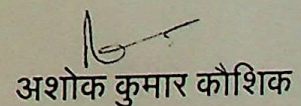 अशोक कुमार कौशिक